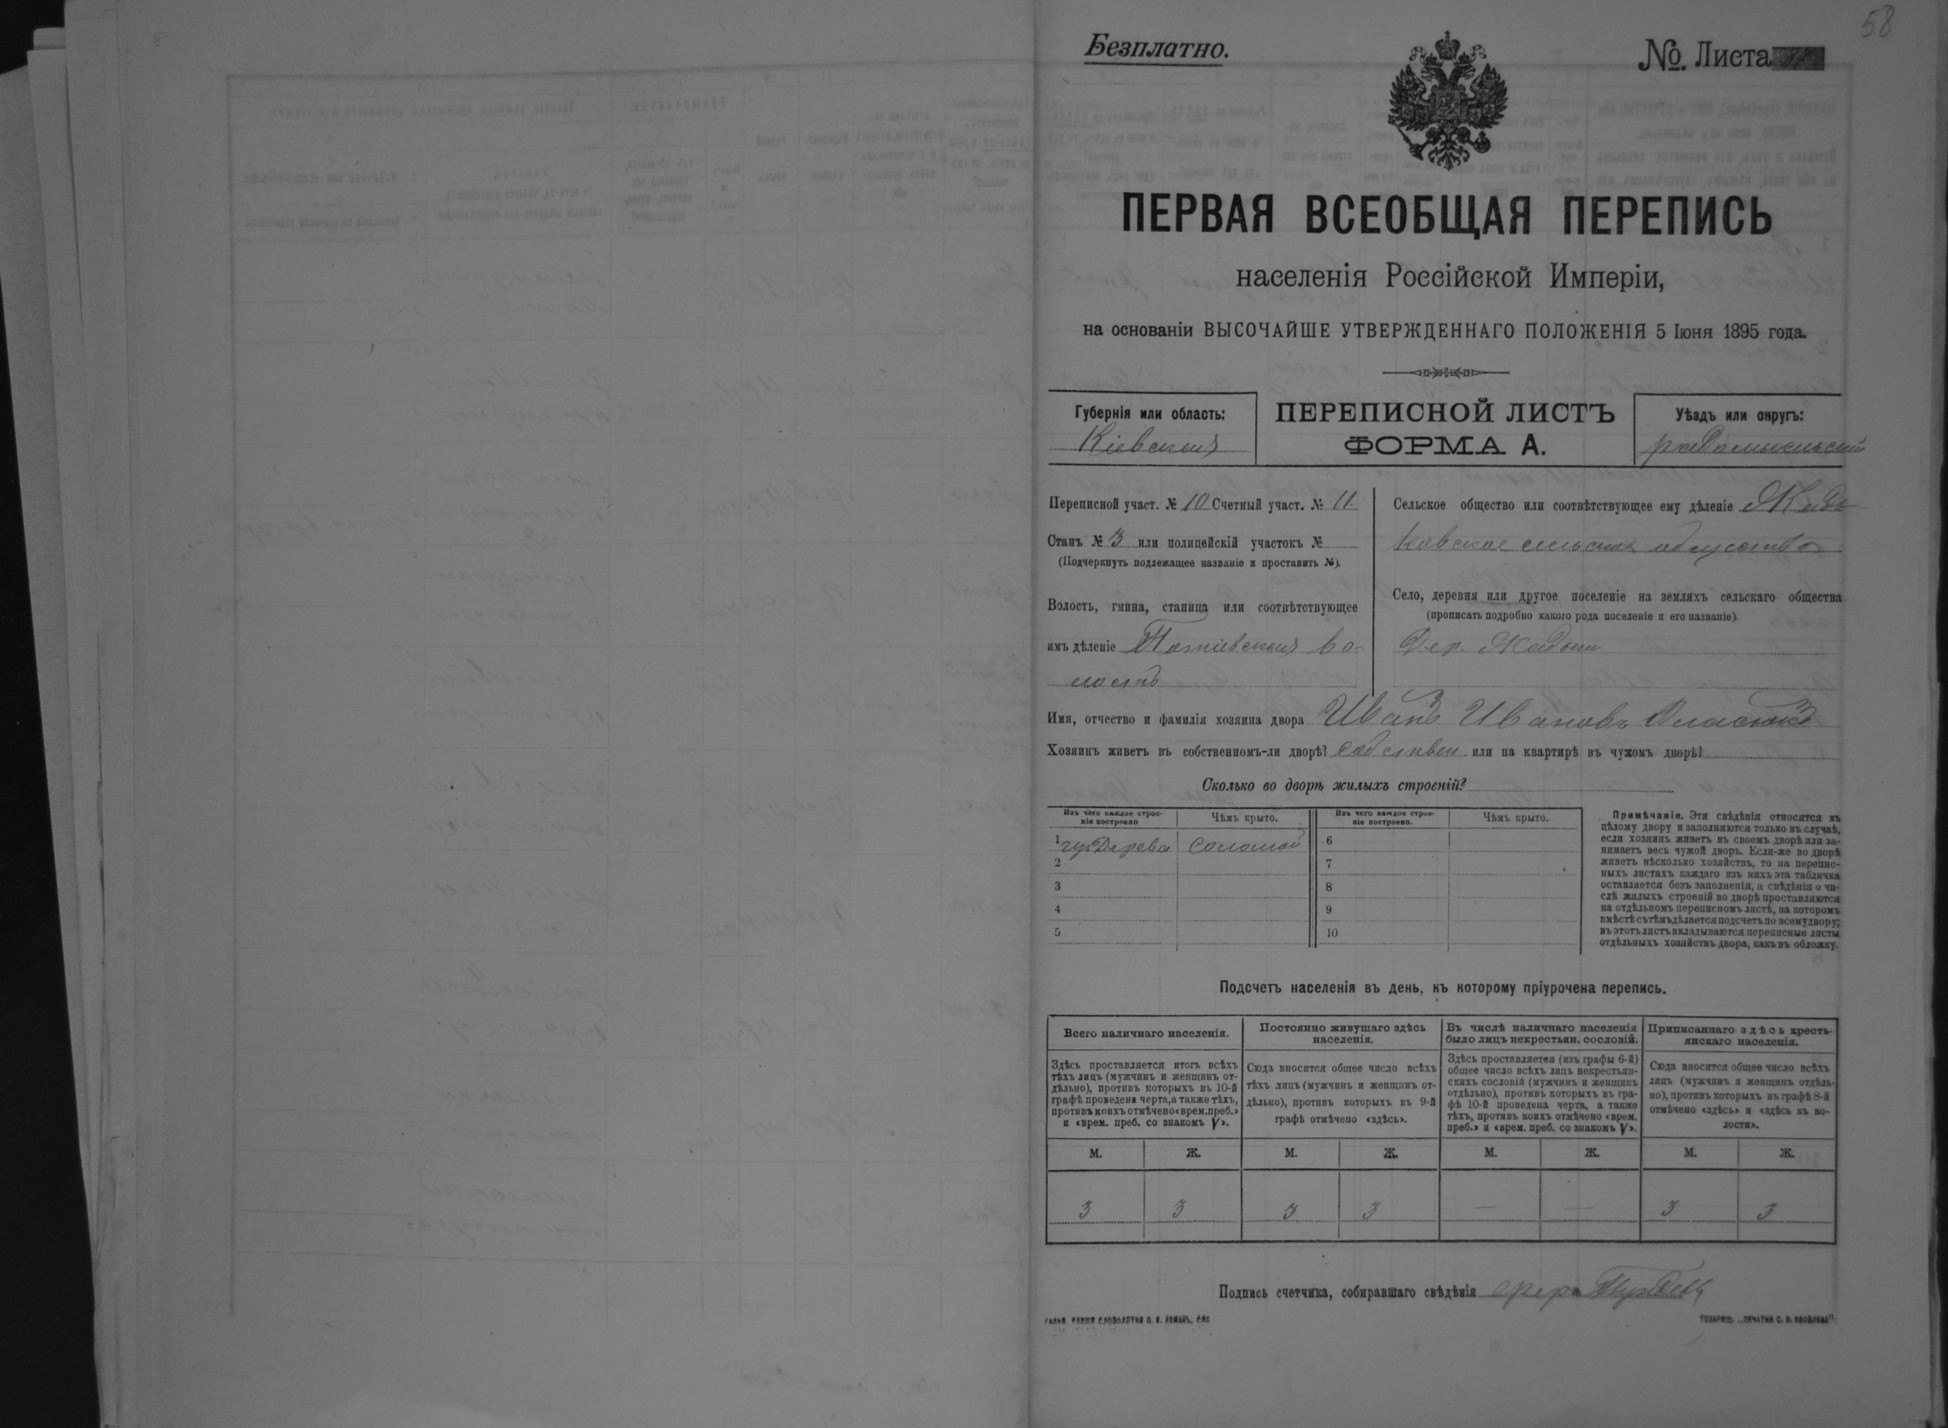 58
Безплатно.
№. Листа
ПЕРВАЯ ВСЕОБЩАЯ ПЕРЕПИСЬ
населенія Россійской Имперіи,
на основаніи ВЫСОЧАЙШЕ УТВЕРЖДЕННАГО ПОЛОЖЕНІЯ 5 Іюня 1895 года.
Губернія или область:
Кіевская
ПЕРЕПИСНОЙ ЛИСТЪ
ФОРМА А.
Уѣздъ или округъ:
радомысльскій
Переписной участ. № 10 Счетный участ. № 11.
Станъ № 3 или полицейскій участокъ №
(Подчеркнуть подлежащее названіе и проставить №).
Волость, гмина, станица или соотвѣтствующее
имъ дѣленіе Потіевская во-
лость
Сельское общество или соотвѣтствующее ему дѣленіе
ковское сельское общество
Село, деревня или другое поселеніе на земляхъ сельскаго общества
(прописать подробно какого рода поселеніе и его названіе).
Дер.
Имя, отчество и фамилія хозяина двора Иванъ Ивановъ
Хозяинъ живетъ въ собственномъ-ли дворѣ? собствен. или на квартирѣ въ чужомъ дворѣ?
Сколько во дворѣ жилыхъ строеній?
Изъ чего каждое строе-
ніе построено
Чѣмъ крыто.
Изъ чего каждое строе-
ніе построено.
Чѣмъ крыто.
1 изъ Дерева соломой
2
3
4
5
6
7
8
9
10
Примѣчаніе. Эти свѣдѣнія относятся къ
цѣлому двору и заполняются только въ случаѣ,
если хозяинъ живетъ въ своемъ дворѣ или за-
нимаетъ весь чужой дворъ. Если-же во дворѣ
живетъ нѣсколько хозяйствъ, то на перепис-
ныхъ листахъ каждаго изъ нихъ эта табличка
оставляется безъ заполненія, а свѣдѣнія о чи-
слѣ жилыхъ строеній во дворѣ проставляются
на отдѣльномъ переписномъ листѣ, на которомъ
вмѣстѣ съ тѣмъ дѣлается подсчетъ по всему двору;
въ этотъ листъ вкладываются переписные листы
отдѣльныхъ хозяйствъ двора, какъ въ обложку.
Подсчетъ населенія въ день, къ которому пріурочена перепись.
Всего наличнаго населенія.
Здѣсь проставляется итогъ всѣхъ
тѣхъ лицъ (мужчинъ и женщинъ от-
дѣльно), противъ которыхъ въ 10-й
графѣ проведена черта, а также тѣхъ,
противъ коихъ отмѣчено «врем. преб.»
и «врем. преб. со знакомъ V».
Постоянно живущаго здѣсь
населенія.
Сюда вносится общее число всѣхъ
тѣхъ лицъ (мужчинъ и женщинъ от-
дѣльно), противъ которыхъ въ 9-й
графѣ отмѣчено «здѣсь».
Въ числѣ наличнаго населенія
было лицъ некрестьян. сословій.
Здѣсь проставляется (изъ графы 6-й)
общее число всѣхъ лицъ некрестьян-
скихъ сословій (мужчинъ и женщинъ
отдѣльно), противъ которыхъ въ гра-
фѣ 10-й проведена черта, а также
тѣхъ, противъ коихъ отмѣчено «врем.
преб.» и «врем. преб. со знакомъ V».
Приписаннаго здѣсь кресть-
янскаго населенія.
Сюда вносится общее число всѣхъ
лицъ (мужчинъ и женщинъ отдѣль-
но), противъ которыхъ въ графѣ 8-й
отмѣчено «здѣсь» и «здѣсь къ во-
лости».
М. Ж. М. Ж. М. Ж. М. Ж.
3 3 3 3 — — 3 3
Подпись счетчика, собиравшаго свѣдѣнія
ГАРЬЯ. ПАРШЯ СЛОВОЛИТНИ О. И. ЛЕМАНЪ, СПБ.
ТОВАРИЩ. „ПЕЧАТНЯ С. П. ЯКОВЛЕВА".